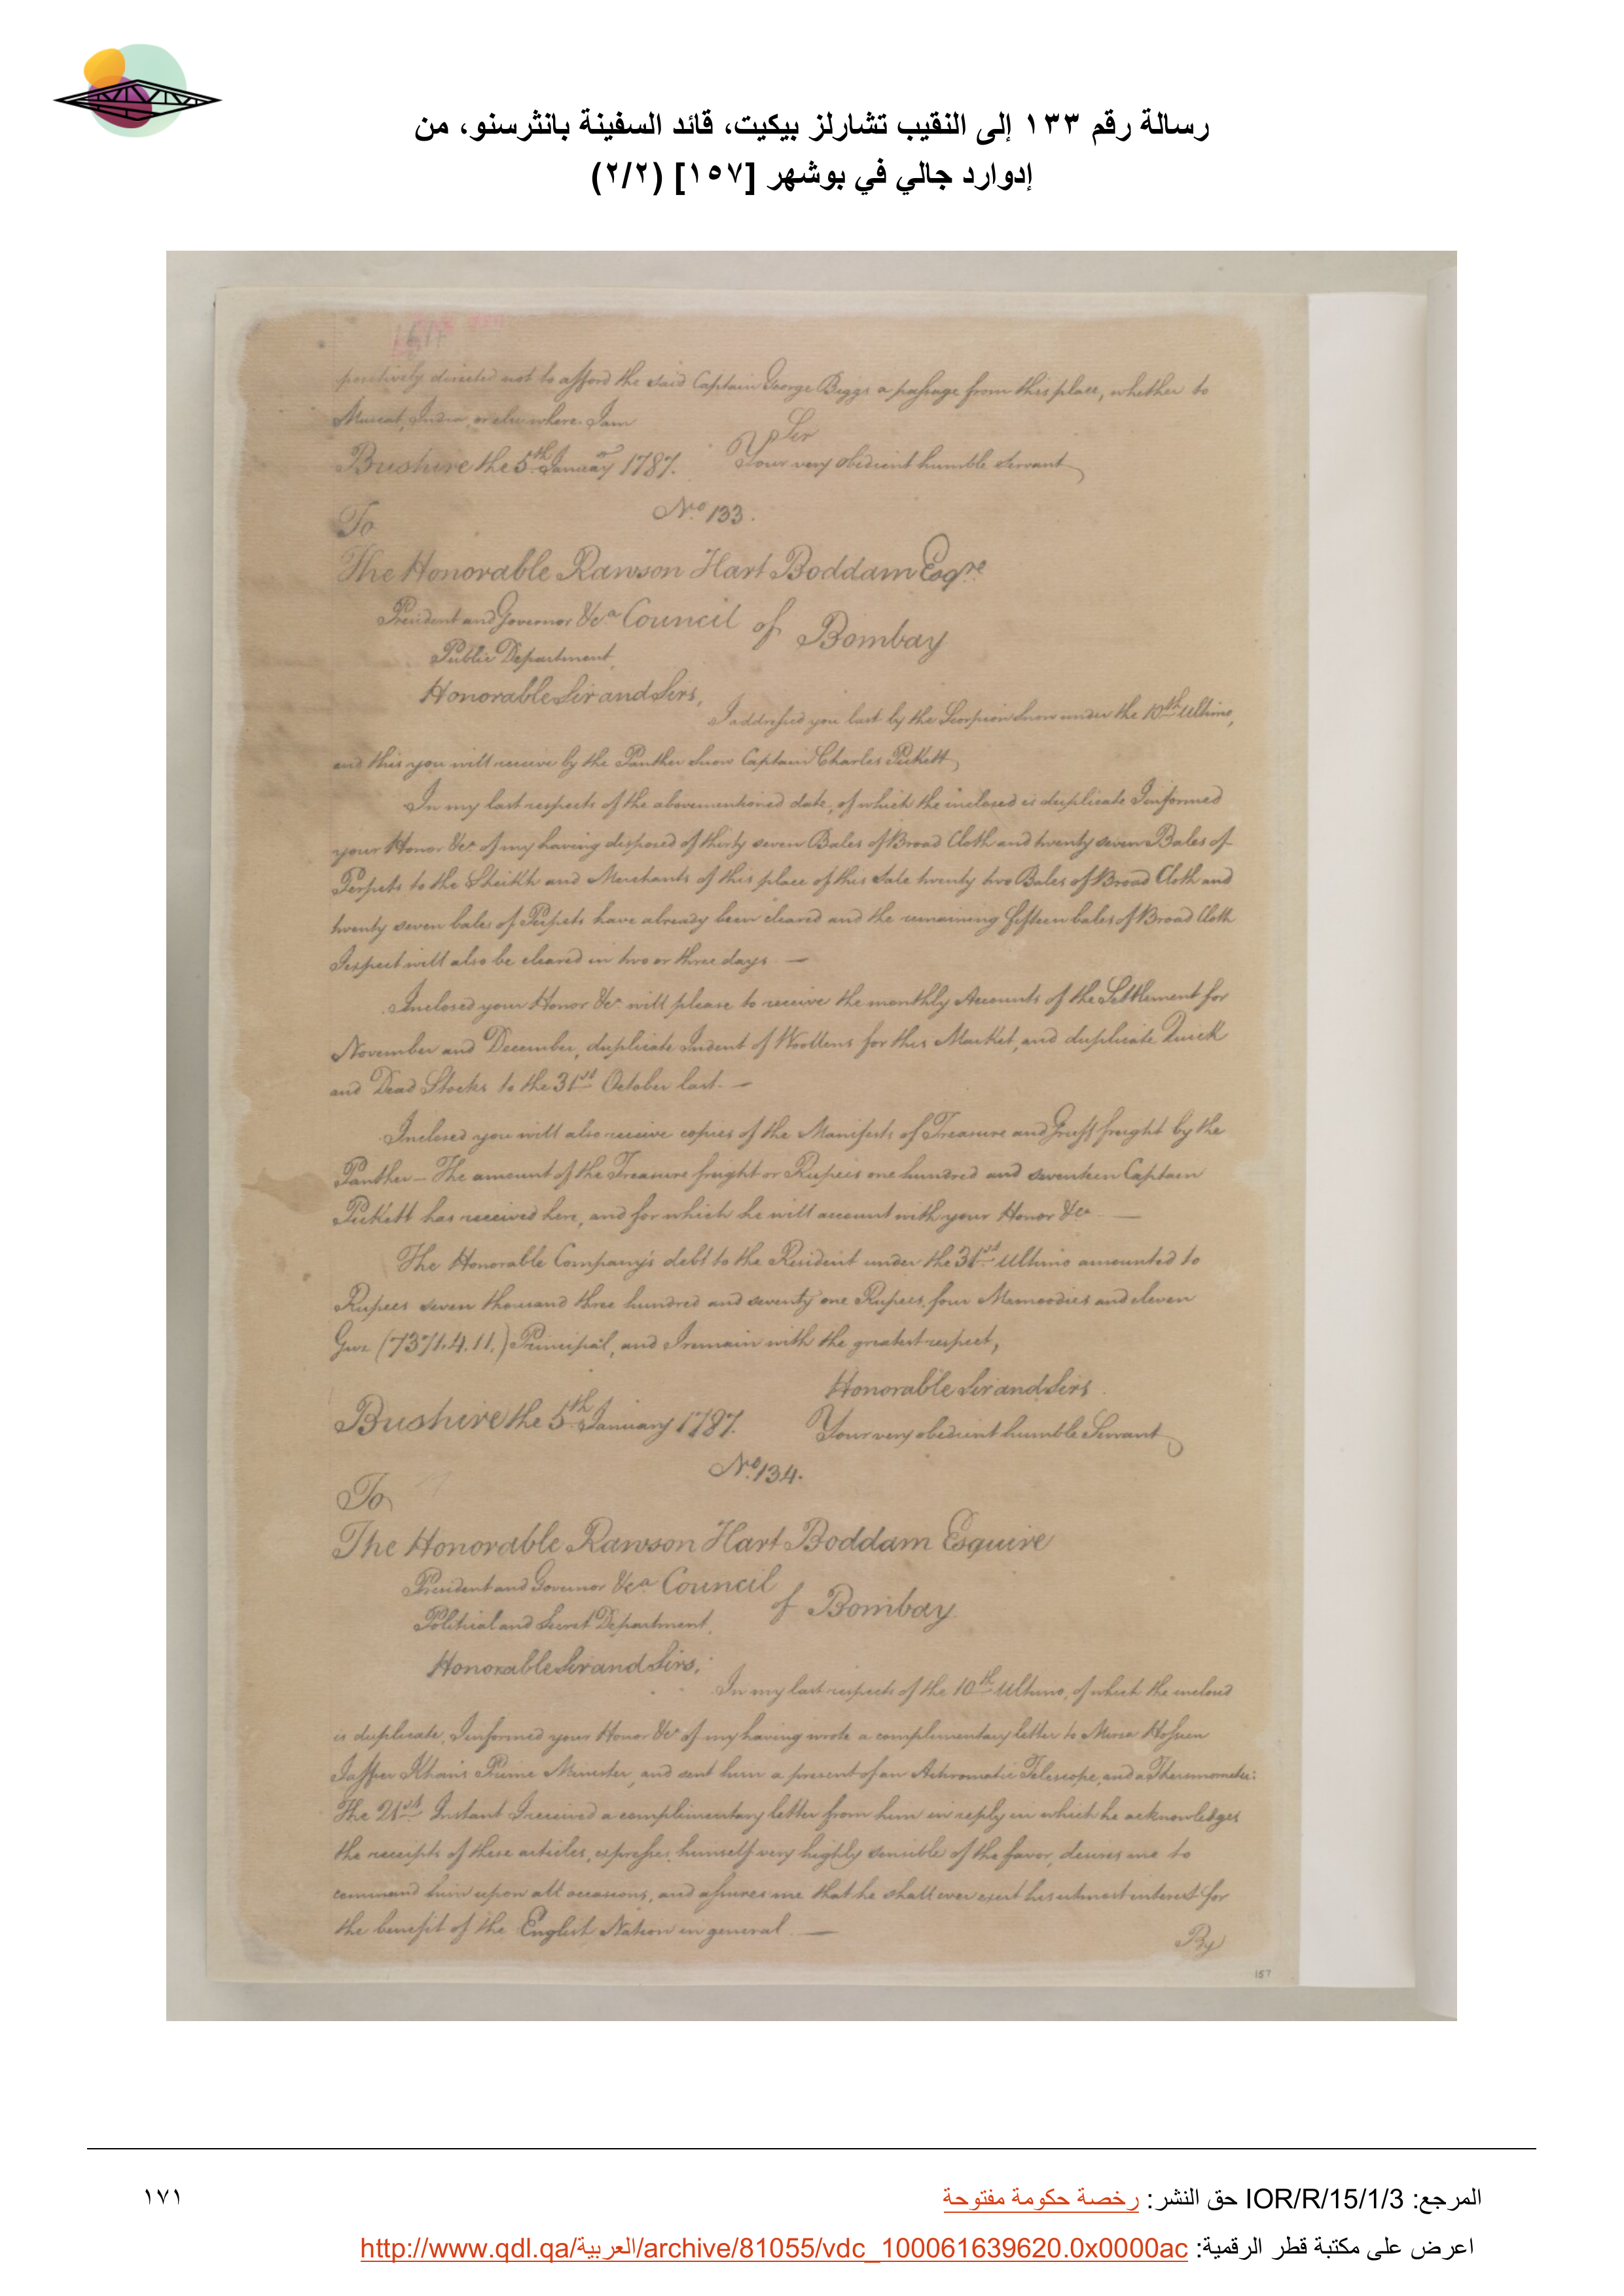 رسالة رقم ١٣٣ إلى النقيب تشارلز بيكيت، قائد السفينة بانثرسنو، من
إدوارد جالي في بوشهر [١٥٧] (٢/٢)
positively directed not to afford the said Captain George Biggs a passage from this place, whether to
Muscat, India, or elsewhere. I am
Sir
Bushire the 5th January 1787. Your very obedient humble Servant
No. 133.
To
The Honorable Rawson Hart Boddam Esqre
President and Governor &ca Council of Bombay
Public Department,
Honorable Sir and Sirs,
I addressed you last by the Scorpion Snow under the 10th Ultimo,
and this you will receive by the Panther Snow Captain Charles Pickett
In my last respects of the abovementioned date, of which the inclosed is duplicate I informed
your Honor &ca of my having disposed of thirty seven Bales of Broad Cloth and twenty seven Bales of
Perpets to the Sheikh and Merchants of this place of this Sale twenty two Bales of Broad Cloth and
twenty seven bales of Perpets have already been cleared and the remaining fifteen bales of Broad Cloth
I expect will also be cleared in two or three days. —
Inclosed your Honor &ca will please to receive the monthly Accounts of the Settlement for
November and December, duplicate Indent of Woollens for this Market, and duplicate Quick
and Dead Stocks to the 31st October last. —
Inclosed you will also receive copies of the Manifests of Treasure and Gruff freight by the
Panther — The amount of the Treasure freight or Rupees one hundred and seventeen Captain
Pickett has received here, and for which he will account with your Honor &ca —
The Honorable Company's debt to the Resident under the 31st Ultimo amounted to
Rupees seven thousand three hundred and seventy one Rupees, four Mamoodies and eleven
(7371.4.11.) Principal, and I remain with the greatest respect,
Honorable Sir and Sirs
Bushire the 5th January 1787. Your very obedient humble Servant
No. 134.
To
The Honorable Rawson Hart Boddam Esquire
President and Governor &ca Council of Bombay
Political and Secret Department,
Honorable Sir and Sirs,
In my last respects of the 10th Ultimo, of which the inclosed
is duplicate, I informed your Honor &ca of my having wrote a complimentary letter to Mirza Hossein
Jaffer Khan's Prime Minister, and sent him a present of an Achromatic Telescope, and a Thermometer:
The 21st Instant I received a complimentary letter from him in reply in which he acknowledges
the receipts of these articles, expresses himself very highly sensible of the favor, desires me to
command him upon all occasions, and assures me that he shall ever exert his utmost interest for
the benefit of the English Nation in general —
By
157
المرجع: IOR/R/15/1/3 حق النشر: رخصة حكومة مفتوحة
١٧١
اعرض على مكتبة قطر الرقمية: http://www.qdl.qa/العربية/archive/81055/vdc_100061639620.0x0000ac